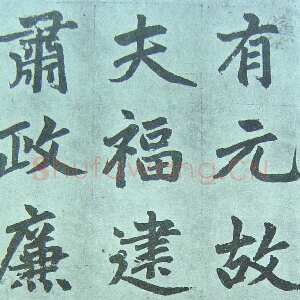 有元故
夫福建
肅政廉
shufawang.cn